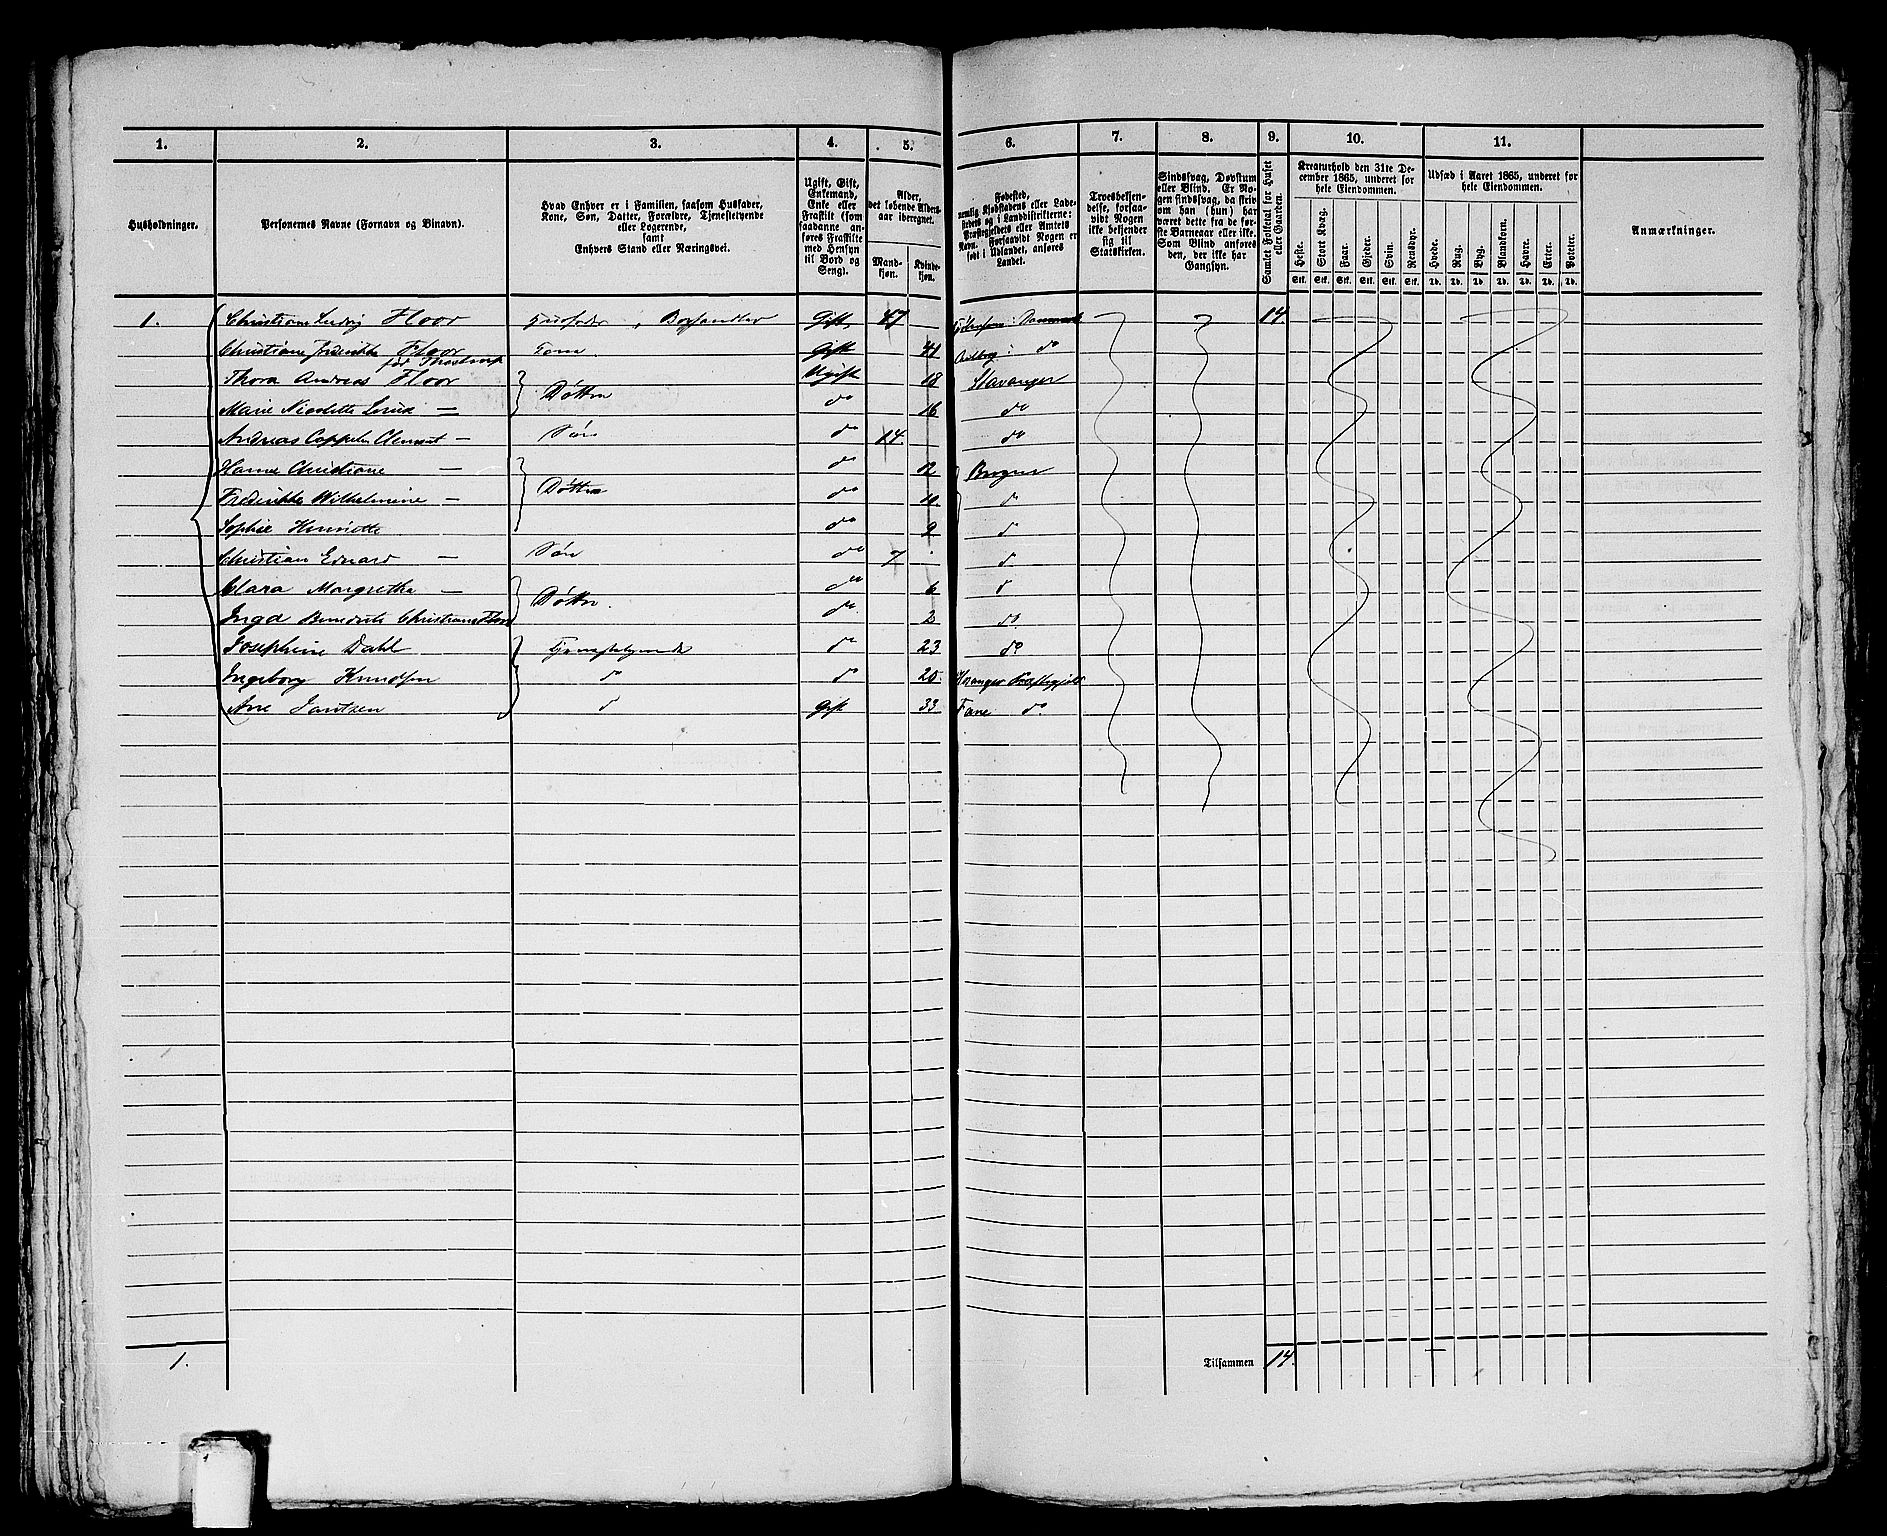 1. 2. 3. 4. 5. 6. 7. 8. 9. 10. 11.
Husholdninger.
Personernes Navne (Fornavn og Binavn).
Hvad Enhver er i Familien, saasom Husfader,
Kone, Søn, Datter, Forældre, Tjenestetyende
eller Logerende,
samt
Enhvers Stand eller Næringsvei.
Ugift, Gift,
Enkemand,
Enke eller
Fraskilt (som
saadanne an-
føres Fraskilte
med Hensyn
til Bord og
Seng).
Alder,
det løbende Alders-
aar iberegnet.
Mand-
kjøn.
Kvinde-
kjøn.
Fødested,
nemlig Kjøbstadens eller Lade-
stedets og i Landdistrikterne:
Præstegjeldets eller Amtets
Navn. Forsaavidt Nogen er
født i Udlandet, anføres
Landet.
Troesbekjen-
delse, forsaa-
vidt Nogen
ikke bekjender
sig til
Statskirken.
Sindssvag, Døvstum
eller Blind. Er No-
gen sindssvag, da skriv
om han (hun) har
været dette fra de før-
ste Barneaar eller ikke.
Som Blind anføres
den, der ikke har
Gangsyn.
Samlet Folketal for Huset
eller Gaarden.
Kreaturhold den 31te De-
cember 1865, underet for
hele Eiendommen.
Heste. Stort Kvæg. Faar. Gjeder. Svin. Rensdyr.
Stk. Stk. Stk. Stk. Stk. Stk.
Udsæd i Aaret 1865, underet for
hele Eiendommen.
Hvede. Rug. Byg. Blandkorn. Havre. Erter. Poteter.
Td. Td. Td. Td. Td. Td. Td.
Anmærkninger.
1. Christian Ludvig Floor Husfader, Boghandler Gift 47 Danmark 14.
Christiane Frederikke Floor Kone Gift 41 Aalborg: do
Thora Andrea Floor Døttre Ugift 18 Stavanger
Marie Nicolette — do 16 do
Andreas Coppelen Clement — Søn do 14. do
Hanne Christiane — do 12 Bergen
Frederikke Wilhelmine — Døttre do 10. do
Sophie Henriette do 9 do
Christian Eduard — Søn do 7 do
Clara Margretha — Døttre do 6 do
Inga Benedicte Christiane Floor do 2 do
Josephine Dahl Tjenestetyende do 23 do
Ingeborg Knudsen do do 20. Præstegjeld
Ane Jantzen do Gift 33 Fane do
1. Tilsammen 14.